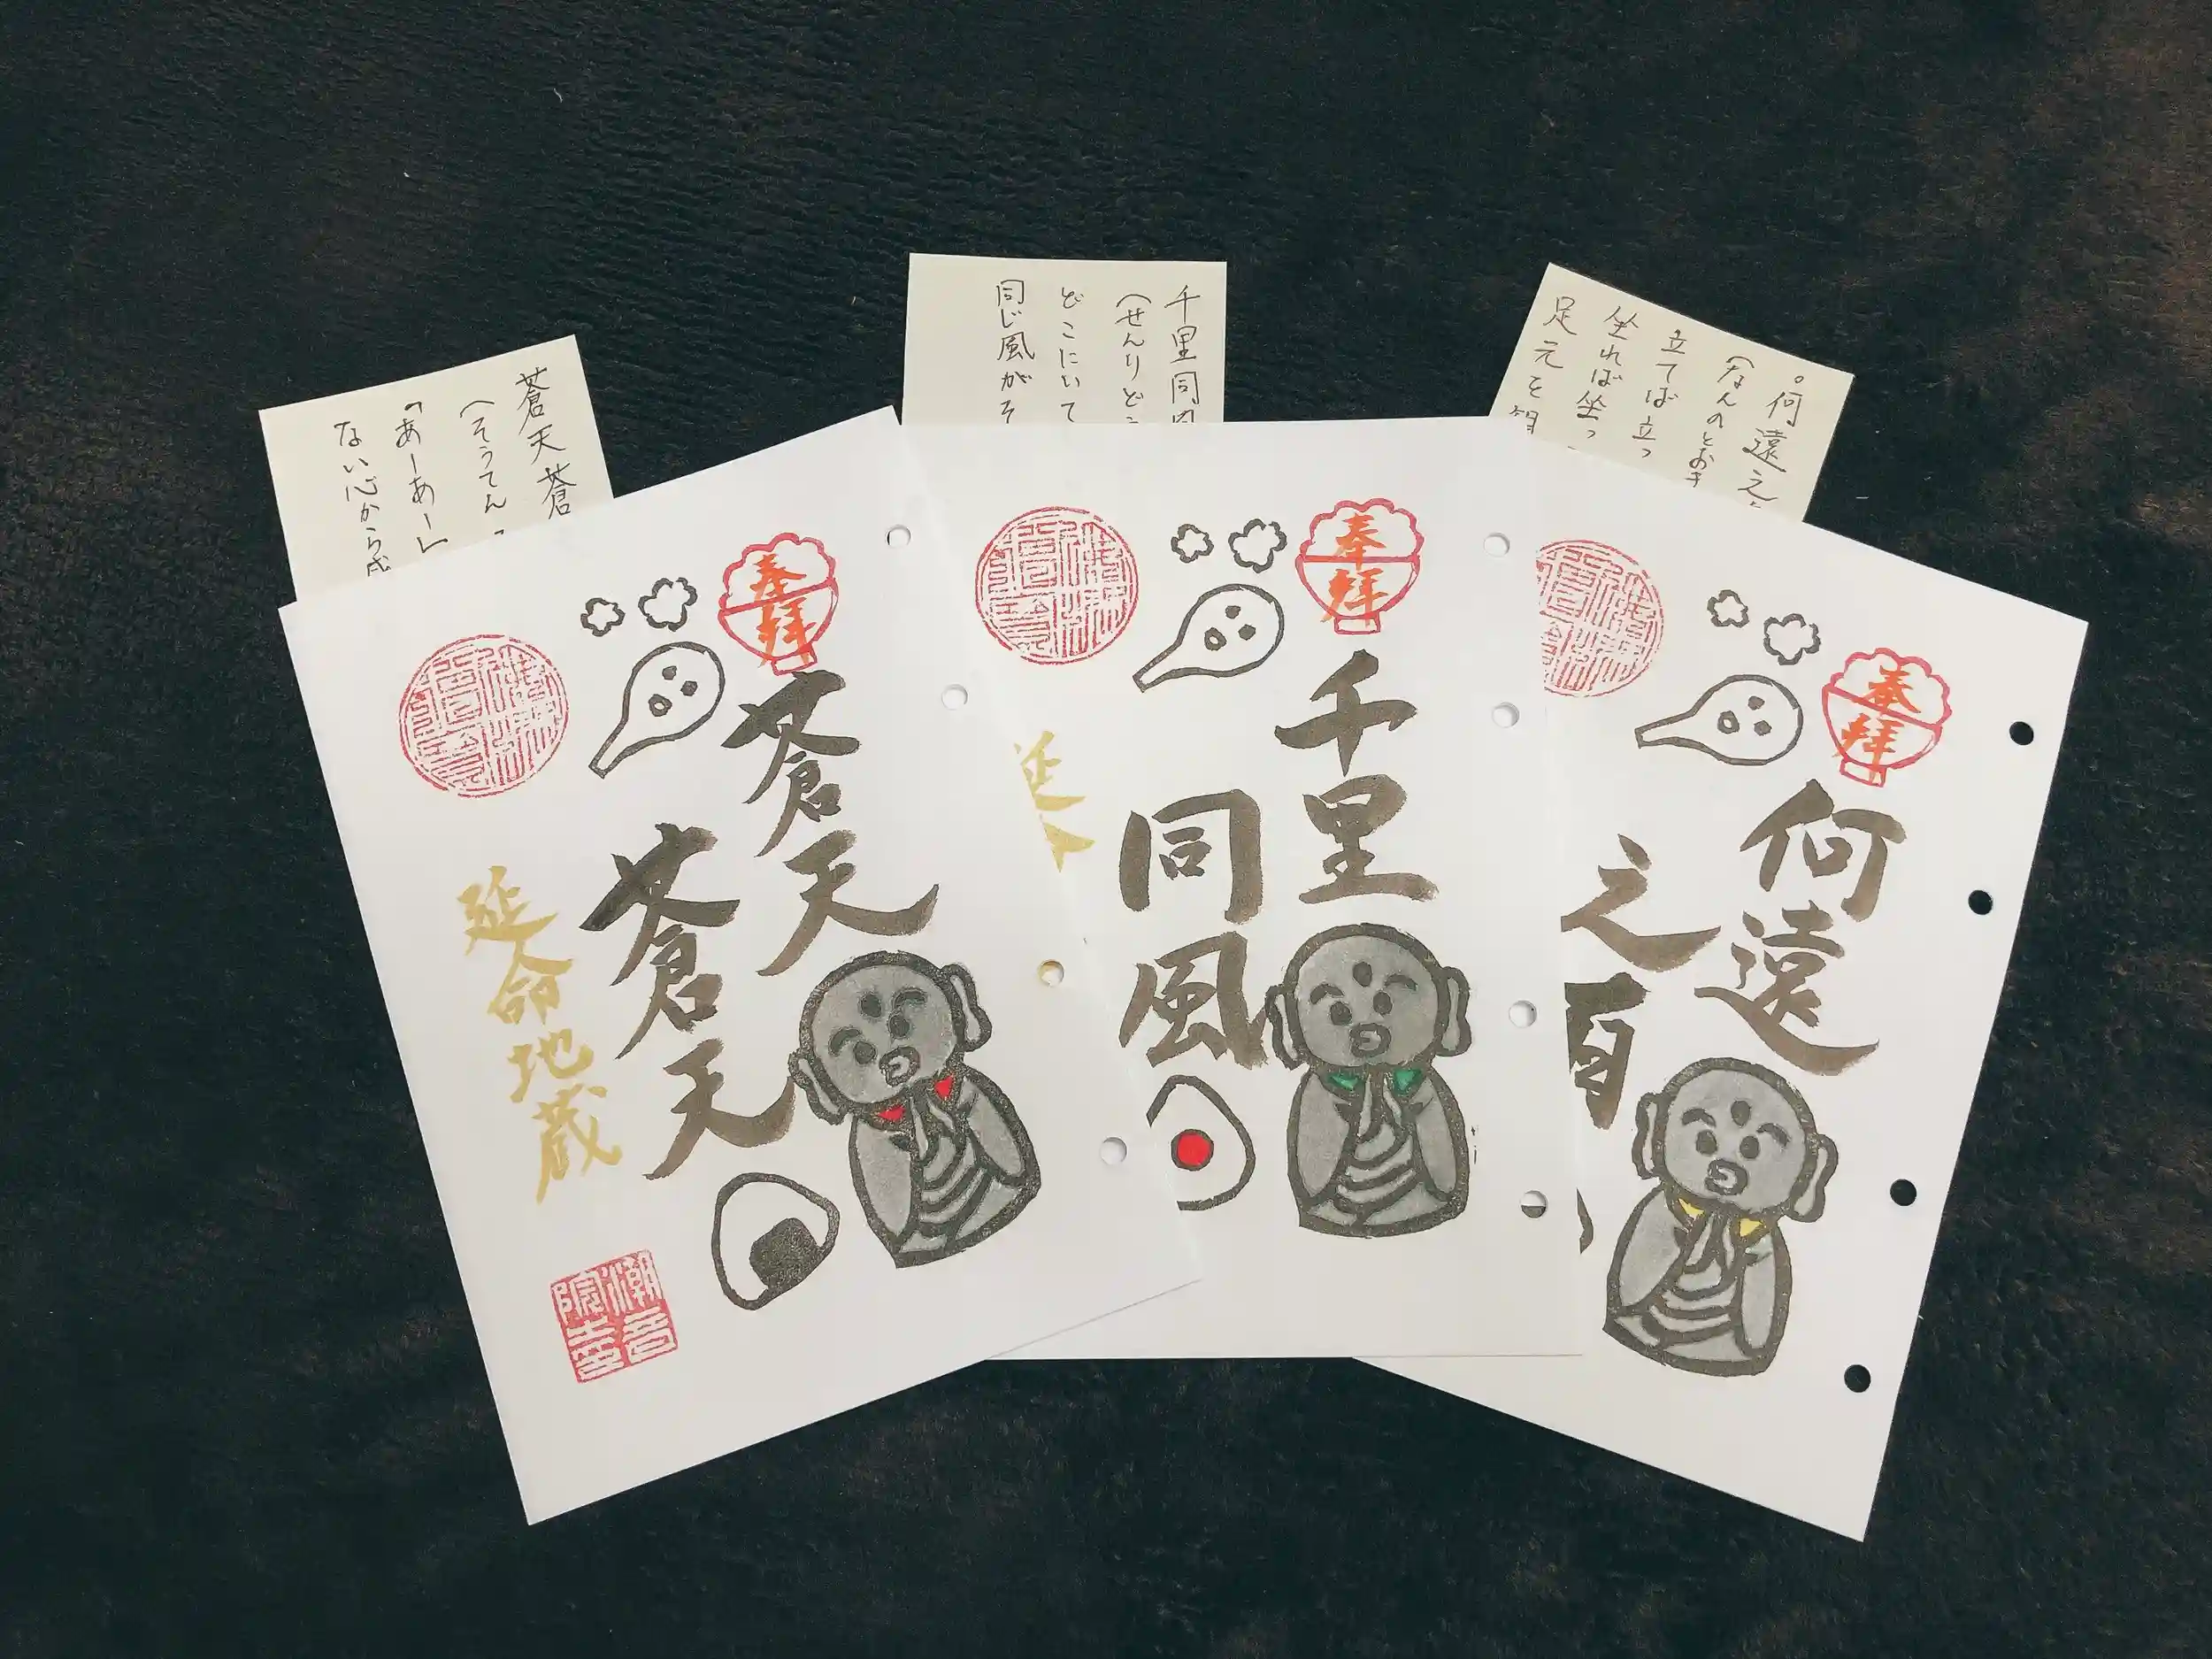 蒼天蒼
(そうてん
「あーあー」
ない心から
千里同風
(せんりどう
どこにいて
同じ風がそ
。何遠之
(なんのとおき
立てば立っ
坐れば坐っ
足元を
奉拝
蒼天
蒼天
延命地蔵
潮音
院主印
奉拝
千里
同風
延命
奉拝
何遠
之有